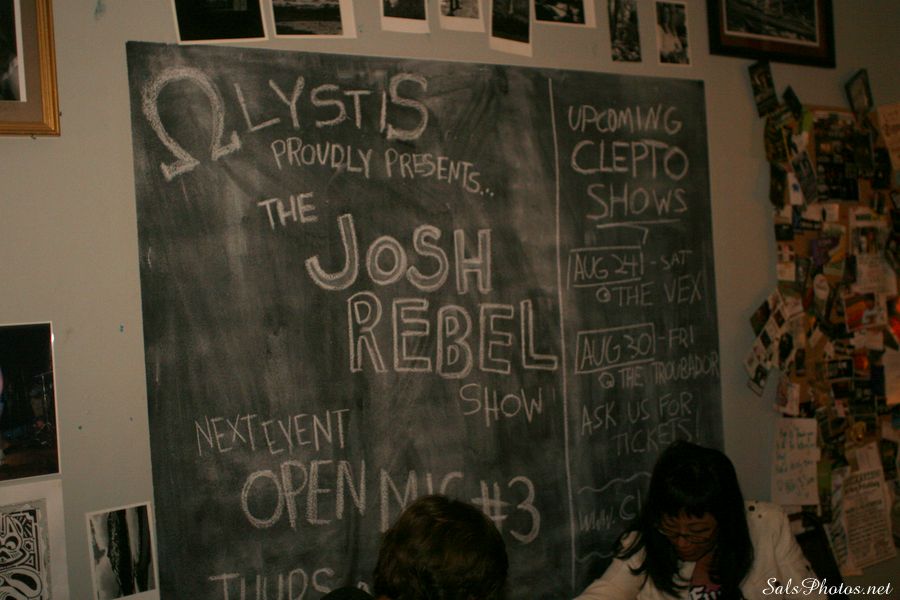 ΩLYSTIS
PROUDLY PRESENTS...
THE
JOSH
REBEL
SHOW
NEXT EVENT
OPEN MIC #3
THURS
UPCOMING
CLEPTO
SHOWS
AUG 24 - SAT
@ THE VEX
AUG 30 - FRI
@ THE TROUBADOR
ASK US FOR
TICKETS!
www.Cl
SalsPhotos.net